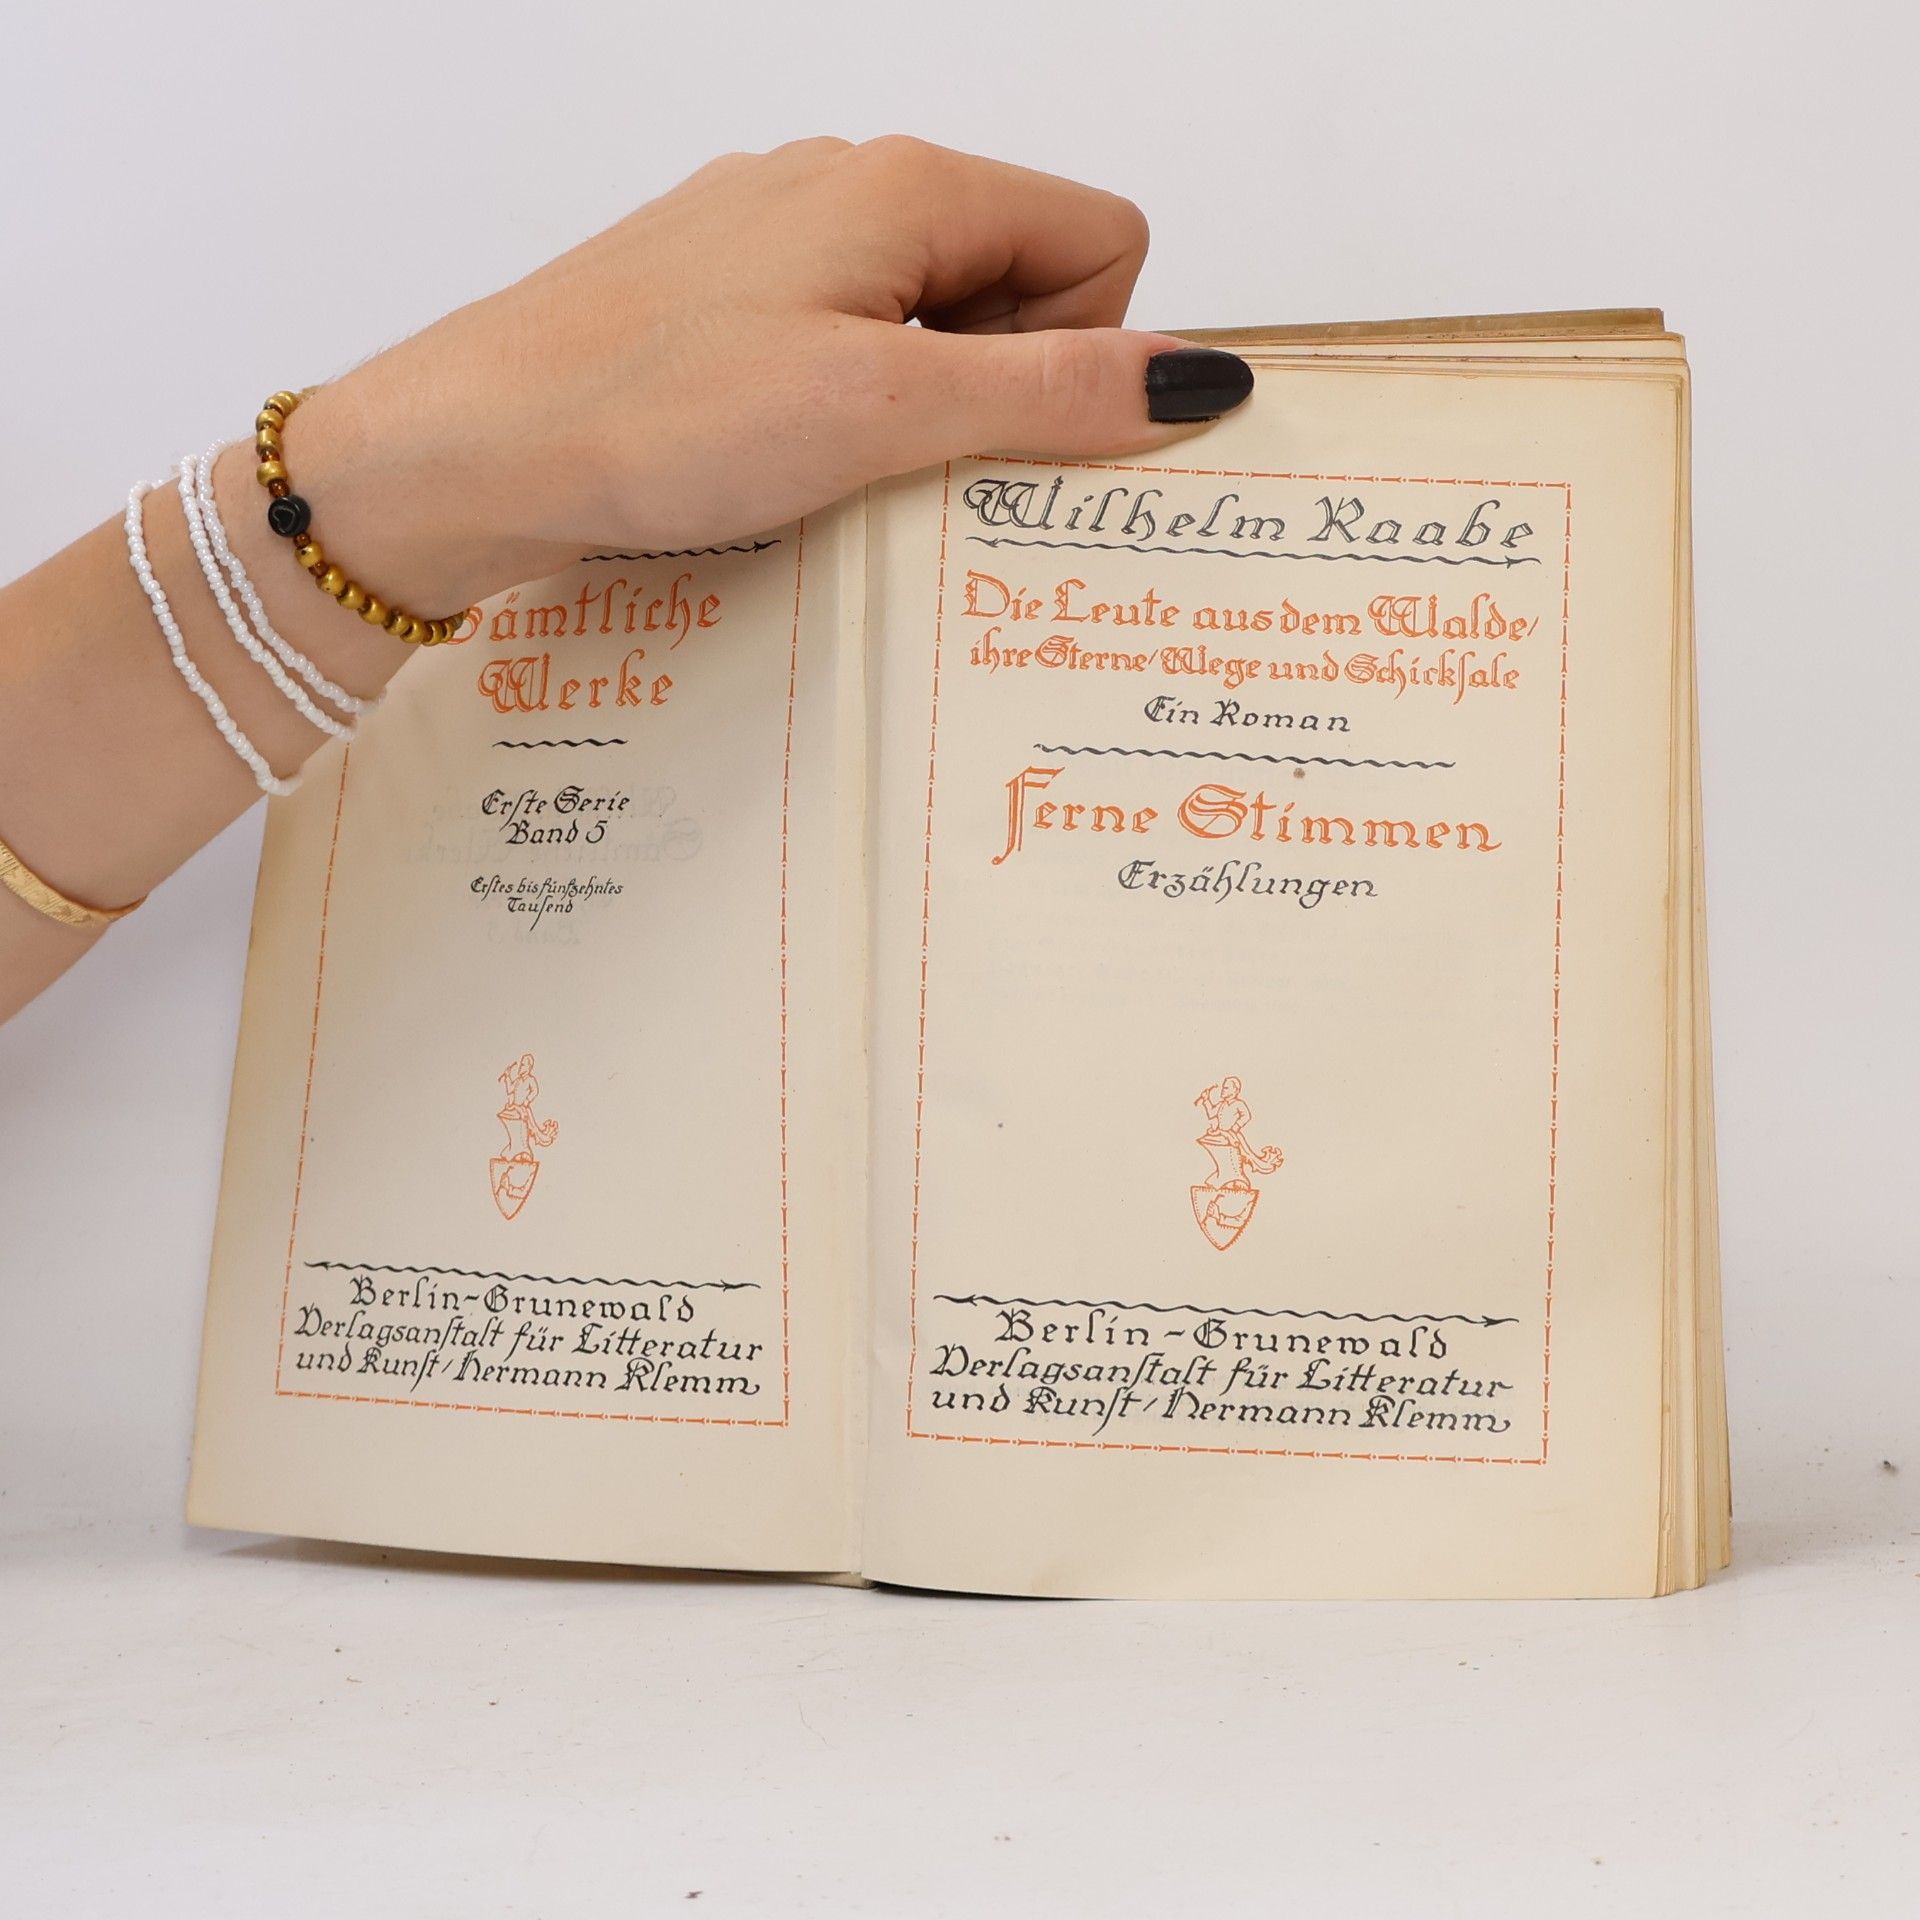 Sämtliche
Werke
Erste Serie
Band 5
Erstes bis fünfzehntes
Tausend
Berlin-Grunewald
Verlagsanstalt für Litteratur
und Kunst / Hermann Klemm
Wilhelm Raabe
Die Leute aus dem Walde /
ihre Sterne / Wege und Schicksale
Ein Roman
Ferne Stimmen
Erzählungen
Berlin-Grunewald
Verlagsanstalt für Litteratur
und Kunst / Hermann Klemm